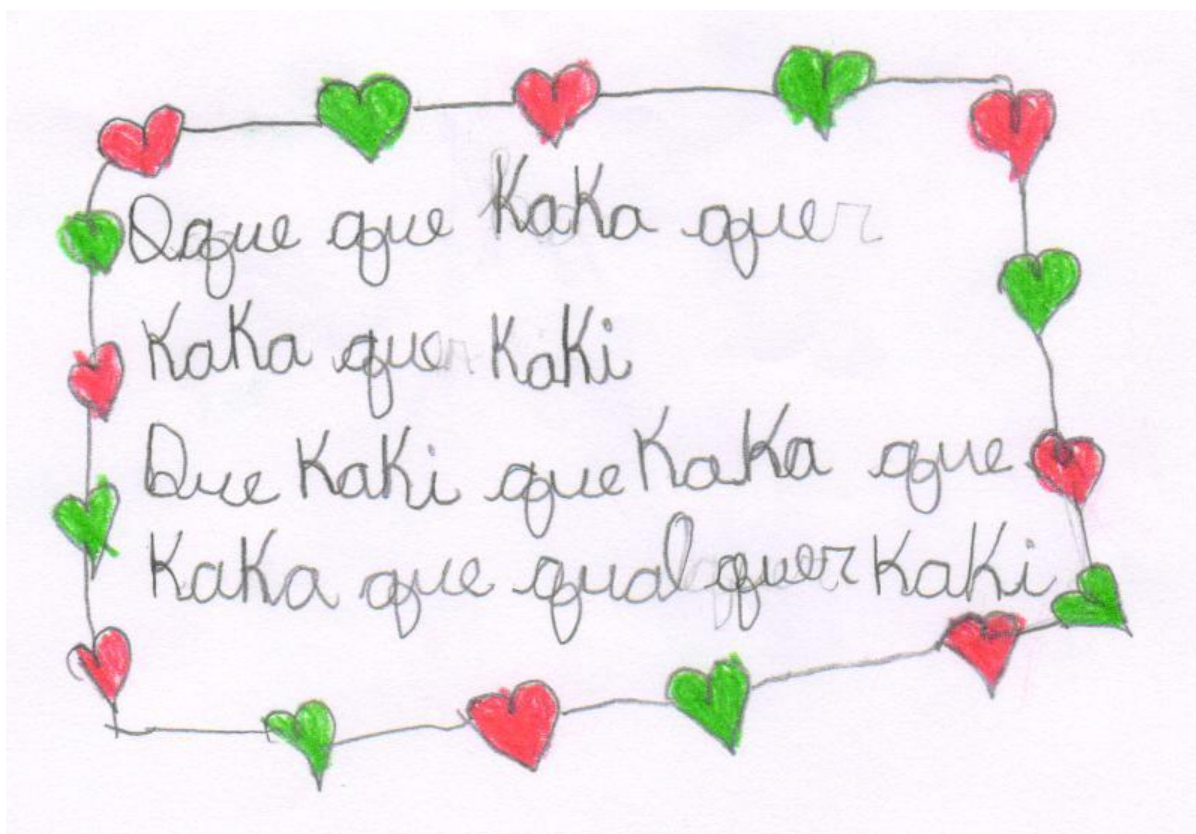 Oque que Kaka quer
Kaka quer Kaki
Que Kaki que Kaka que
Kaka que qualquer Kaki